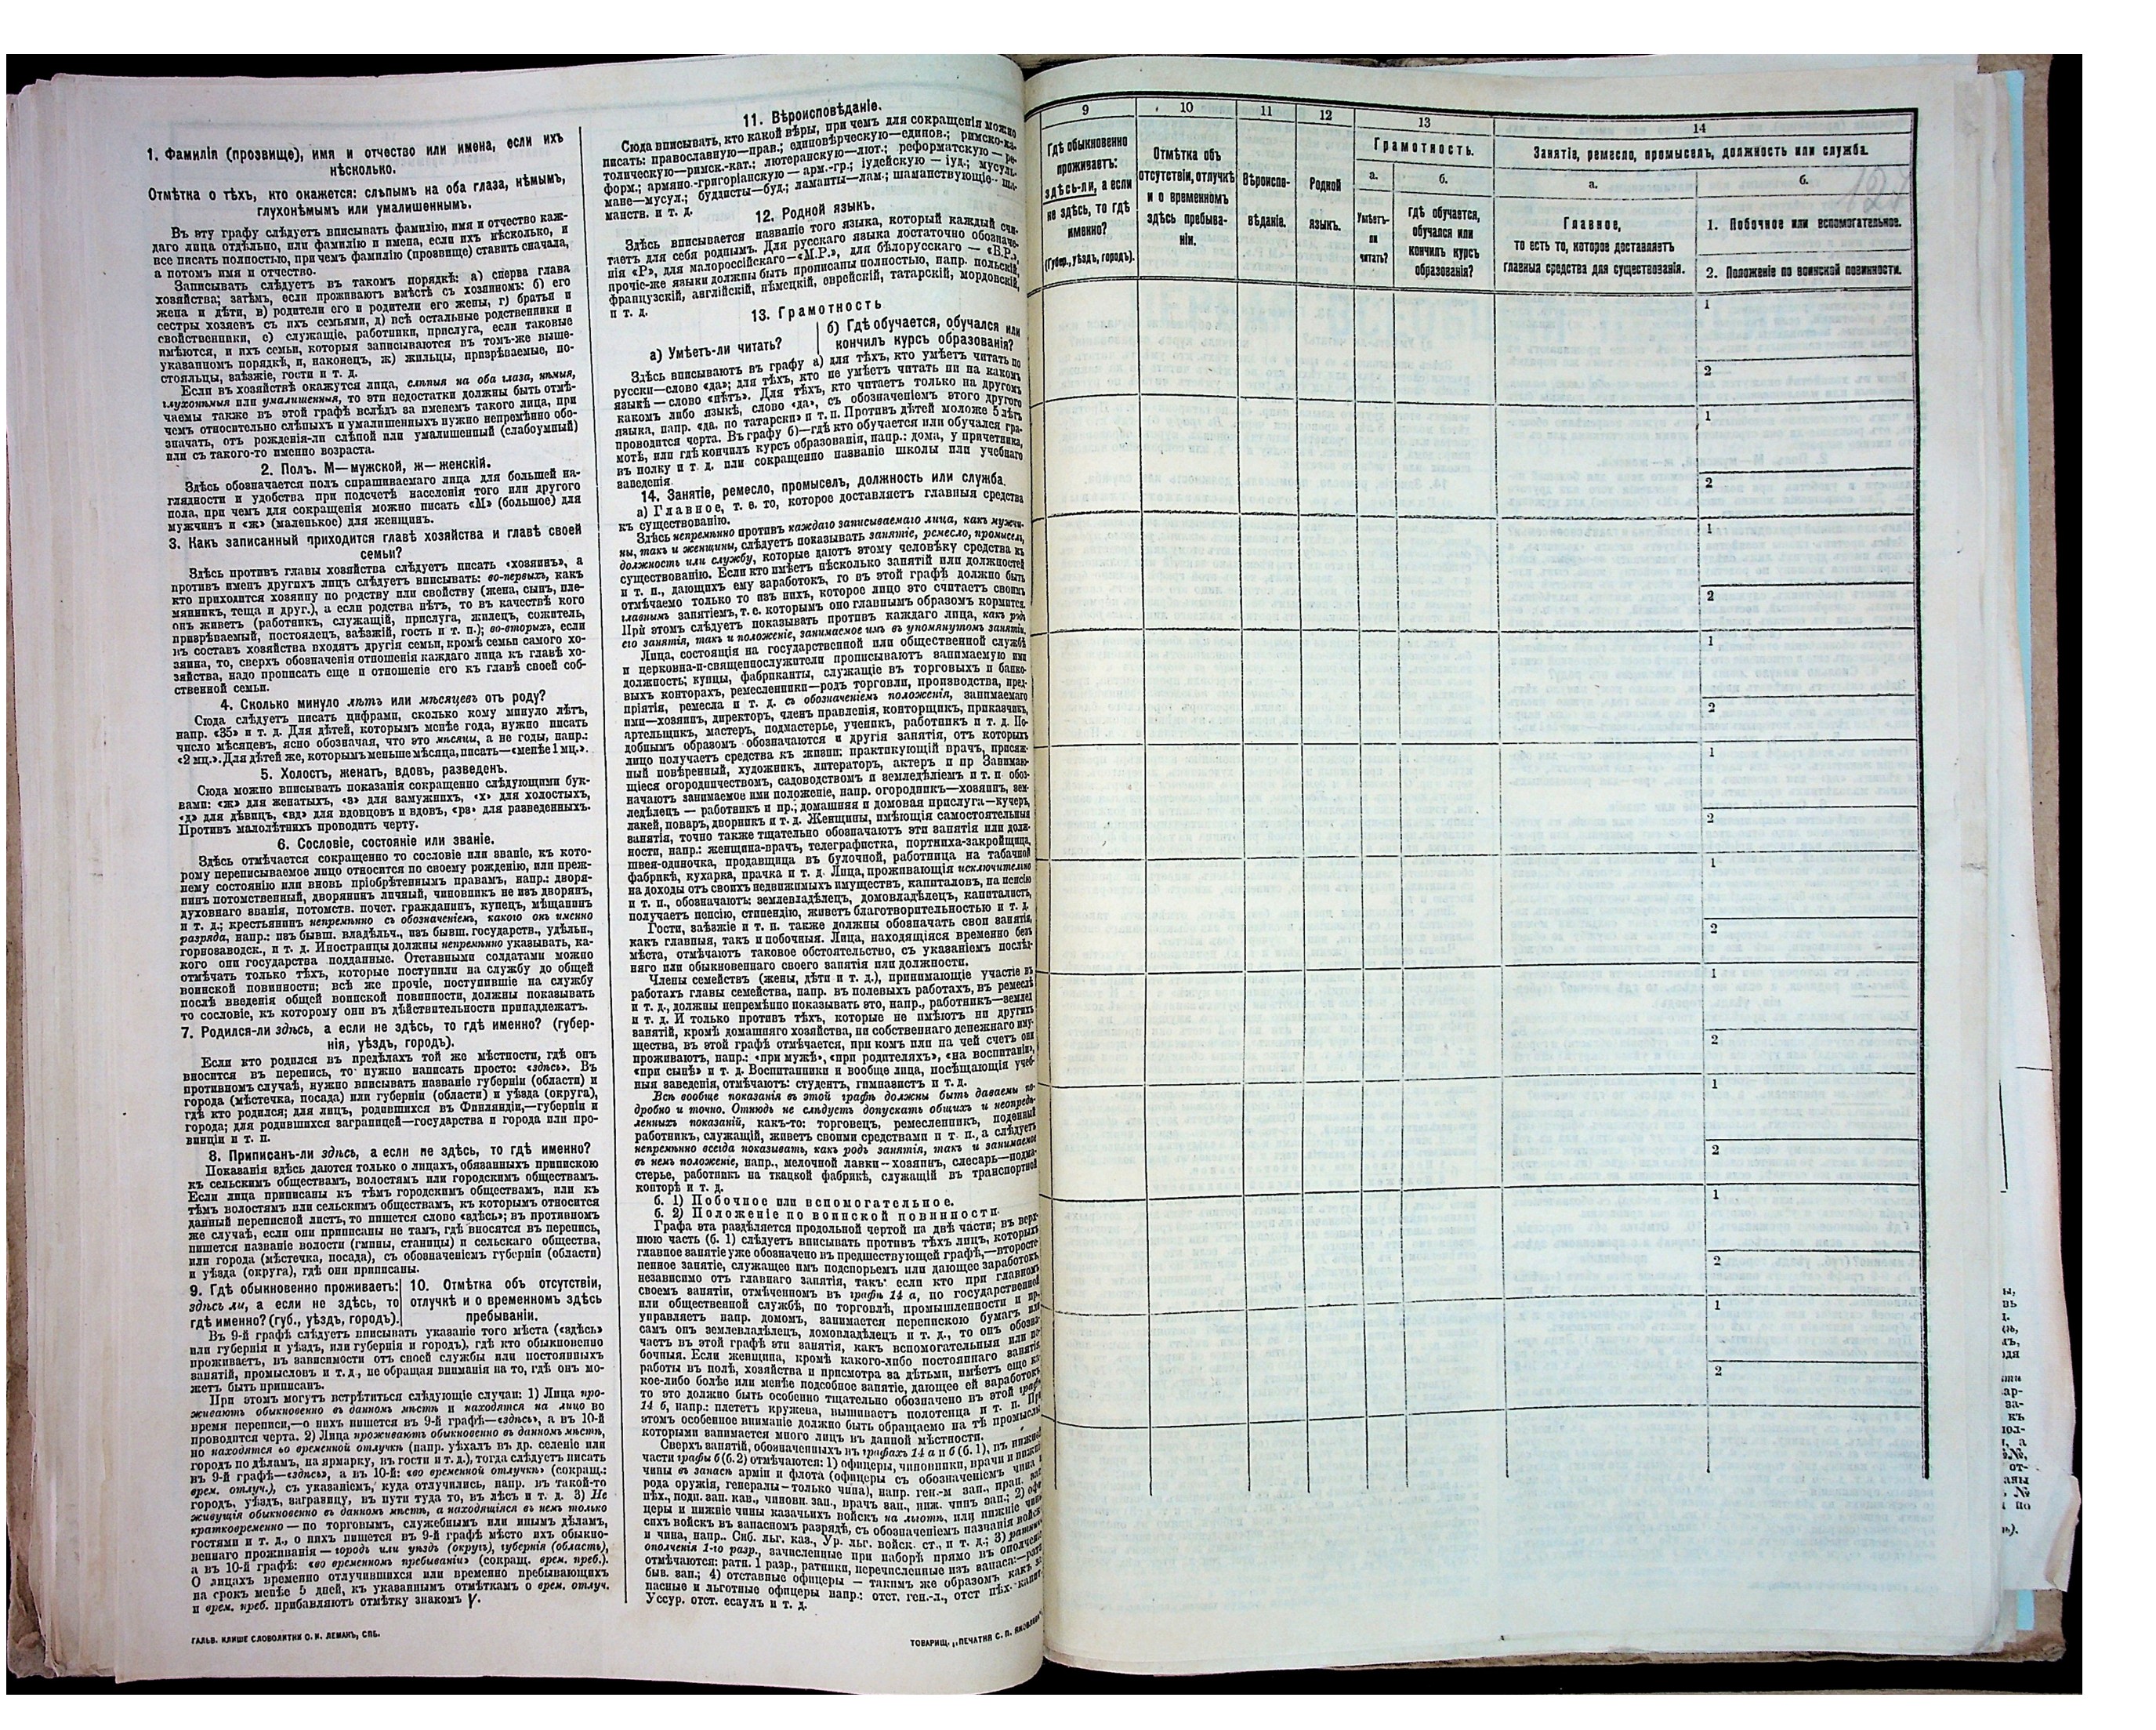 1. Фамилія (прозвище), имя и отчество или имена, если ихъ
нѣсколько.
Отмѣтка о тѣхъ, кто окажется: слѣпымъ на оба глаза, нѣмымъ,
глухонѣмымъ или умалишеннымъ.
Въ эту графу слѣдуетъ вписывать фамилію, имя и отчество каж-
даго лица отдѣльно, или фамилію и имена, если ихъ нѣсколько, и
все писать полностью, при чемъ фамилію (прозвище) ставить сначала,
а потомъ имя и отчество.
Записывать слѣдуетъ въ такомъ порядкѣ: а) сперва глава
хозяйства; затѣмъ, если проживаютъ вмѣстѣ съ хозяиномъ: б) его
жена и дѣти, в) родители его и родители его жены, г) братья и
сестры хозяевъ съ ихъ семьями, д) всѣ остальные родственники и
свойственники, е) служащіе, работники, прислуга, если таковые
имѣются, и ихъ семьи, которыя записываются въ томъ-же выше-
указанномъ порядкѣ, и, наконецъ, ж) жильцы, призрѣваемые, по-
стояльцы, заѣзжіе, гости и т. д.
Если въ хозяйствѣ окажутся лица, слѣпыя на оба глаза, нѣмыя,
глухонѣмыя или умалишенныя, то эти недостатки должны быть отмѣ-
чаемы также въ этой графѣ вслѣдъ за именемъ такого лица, при
чемъ относительно слѣпыхъ и умалишенныхъ нужно непремѣнно обо-
значать, отъ рожденія-ли слѣпой или умалишенный (слабоумный)
или съ такого-то именно возраста.
2. Полъ. М—мужской, ж—женскій.
Здѣсь обозначается полъ спрашиваемаго лица для большей на-
глядности и удобства при подсчетѣ населенія того или другого
пола, при чемъ для сокращенія можно писать «М» (большое) для
мужчинъ и «ж» (маленькое) для женщинъ.
3. Какъ записанный приходится главѣ хозяйства и главѣ своей
семьи?
Здѣсь противъ главы хозяйства слѣдуетъ писать «хозяинъ», а
противъ именъ другихъ лицъ слѣдуетъ вписывать: во-первыхъ, какъ
кто приходится хозяину по родству или свойству (жена, сынъ, пле-
мянникъ, теща и друг.), а если родства нѣтъ, то въ качествѣ кого
онъ живетъ (работникъ, служащій, прислуга, жилецъ, сожитель,
призрѣваемый, постоялецъ, заѣзжій, гость и т. п.); во-вторыхъ, если
въ составъ хозяйства входятъ другія семьи, кромѣ семьи самого хо-
зяина, то, сверхъ обозначенія отношенія каждаго лица къ главѣ хо-
зяйства, надо прописать еще и отношеніе его къ главѣ своей соб-
ственной семьи.
4. Сколько минуло лѣтъ или мѣсяцевъ отъ роду?
Сюда слѣдуетъ писать цифрами, сколько кому минуло лѣтъ,
напр. «35» и т. д. Для дѣтей, которымъ менѣе года, нужно писать
число мѣсяцевъ, ясно обозначая, что это мѣсяцы, а не годы, напр.:
«2 мц.». Для дѣтей же, которымъ меньше мѣсяца, писать—«менѣе 1 мц.».
5. Холостъ, женатъ, вдовъ, разведенъ.
Сюда можно вписывать показанія сокращенно слѣдующими бук-
вами: «ж» для женатыхъ, «з» для замужнихъ, «х» для холостыхъ,
«д» для дѣвицъ, «вд» для вдовцовъ и вдовъ, «рз» для разведенныхъ.
Противъ малолѣтнихъ проводить черту.
6. Сословіе, состояніе или званіе.
Здѣсь отмѣчается сокращенно то сословіе или званіе, къ кото-
рому переписываемое лицо относится по своему рожденію, или преж-
нему состоянію или вновь пріобрѣтеннымъ правамъ, напр.: дворя-
нинъ потомственный, дворянинъ личный, чиновникъ не изъ дворянъ,
духовнаго званія, потомств. почет. гражданинъ, купецъ, мѣщанинъ
и т. д.; крестьянинъ непремѣнно съ обозначеніемъ, какого онъ именно
разряда, напр.: изъ бывш. владѣльч., изъ бывш. государств., удѣльн.,
горнозаводск., и т. д. Иностранцы должны непремѣнно указывать, ка-
кого они государства подданные. Отставными солдатами можно
отмѣчать только тѣхъ, которые поступили на службу до общей
воинской повинности; всѣ же прочіе, поступившіе на службу
послѣ введенія общей воинской повинности, должны показывать
то сословіе, къ которому они въ дѣйствительности принадлежатъ.
7. Родился-ли здѣсь, а если не здѣсь, то гдѣ именно? (губер-
нія, уѣздъ, городъ).
Если кто родился въ предѣлахъ той же мѣстности, гдѣ онъ
вносится въ перепись, то нужно написать просто: «здѣсь». Въ
противномъ случаѣ, нужно вписывать названіе губерніи (области) и
города (мѣстечка, посада) или губерніи (области) и уѣзда (округа),
гдѣ кто родился; для лицъ, родившихся въ Финляндіи,—губерніи и
города; для родившихся заграницей—государства и города или про-
винціи и т. п.
8. Приписанъ-ли здѣсь, а если не здѣсь, то гдѣ именно?
Показанія здѣсь даются только о лицахъ, обязанныхъ припискою
къ сельскимъ обществамъ, волостямъ или городскимъ обществамъ.
Если лица приписаны къ тѣмъ городскимъ обществамъ, или къ
тѣмъ волостямъ или сельскимъ обществамъ, къ которымъ относится
данный переписной листъ, то пишется слово «здѣсь»; въ противномъ
же случаѣ, если они приписаны не тамъ, гдѣ вносятся въ перепись,
пишется названіе волости (гмины, станицы) и сельскаго общества,
или города (мѣстечка, посада), съ обозначеніемъ губерніи (области)
и уѣзда (округа), гдѣ они приписаны.
9. Гдѣ обыкновенно проживаетъ:
здѣсь ли, а если не здѣсь, то
гдѣ именно? (губ., уѣздъ, городъ).
10. Отмѣтка объ отсутствіи,
отлучкѣ и о временномъ здѣсь
пребываніи.
Въ 9-й графѣ слѣдуетъ вписывать указаніе того мѣста («здѣсь»
или губернія и уѣздъ, или губернія и городъ), гдѣ кто обыкновенно
проживаетъ, въ зависимости отъ своей службы или постоянныхъ
занятій, промысловъ и т. д., не обращая вниманія на то, гдѣ онъ мо-
жетъ быть приписанъ.
При этомъ могутъ встрѣтиться слѣдующіе случаи: 1) Лица про-
живаютъ обыкновенно въ данномъ мѣстѣ и находятся на лицо во
время переписи,—о нихъ пишется въ 9-й графѣ—«здѣсь», а въ 10-й
проводится черта. 2) Лица проживаютъ обыкновенно въ данномъ мѣстѣ,
но находятся во временной отлучкѣ (напр. уѣхалъ въ др. селеніе или
городъ по дѣламъ, на ярмарку, въ гости и т. д.), тогда слѣдуетъ писать
въ 9-й графѣ—«здѣсь», а въ 10-й: «во временной отлучкѣ» (сокращ.:
врем. отлуч.), съ указаніемъ, куда отлучились, напр. въ такой-то
городъ, уѣздъ, заграницу, въ пути туда то, въ лѣсъ и т. д. 3) Не
живущія обыкновенно въ данномъ мѣстѣ, а находящіяся въ немъ только
кратковременно — по торговымъ, служебнымъ или инымъ дѣламъ,
гостями и т. д., о нихъ пишется въ 9-й графѣ мѣсто ихъ обыкно-
веннаго проживанія — городъ или уѣздъ (округъ), губернія (область),
а въ 10-й графѣ: «во временномъ пребываніи» (сокращ. врем. преб.).
О лицахъ временно отлучившихся или временно пребывающихъ
на срокъ менѣе 5 дней, къ указаннымъ отмѣткамъ о врем. отлуч.
и врем. преб. прибавляютъ отмѣтку знакомъ V.
ГАЛЬВ. КЛИШЕ СЛОВОЛИТНИ О. И. ЛЕМАНЪ, СПБ.
11. Вѣроисповѣданіе.
Сюда вписывать, кто какой вѣры, при чемъ для сокращенія можно
писать: православную—прав.; единовѣрческую—единов.; римско-ка-
толическую—римск.-кат.; лютеранскую—лют.; реформатскую — ре-
форм.; армяно.-григоріанскую — арм.-гр.; іудейскую — іуд.; мусуль-
мане—мусул.; буддисты—буд.; ламаиты—лам.; шаманствующіе- ша-
манств. и т. д.
12. Родной языкъ.
Здѣсь вписывается названіе того языка, который каждый счи-
таетъ для себя роднымъ. Для русскаго языка достаточно обозначе-
нія «Р», для малороссійскаго—«М.Р.», для бѣлорусскаго — «Б.Р.»,
прочіе-же языки должны быть прописаны полностью, напр. польскій,
французскій, англійскій, нѣмецкій, еврейскій, татарскій, мордовскій,
и т. д.
13. Грамотность
а) Умѣетъ-ли читать?
б) Гдѣ обучается, обучался или
кончилъ курсъ образованія?
Здѣсь вписываютъ въ графу а) для тѣхъ, кто умѣетъ читать по
русски—слово «да»; для тѣхъ, кто не умѣетъ читать ни на какомъ
языкѣ — слово «нѣтъ». Для тѣхъ, кто читаетъ только на другомъ
какомъ либо языкѣ, слово «да», съ обозначеніемъ этого другого
языка, напр. «да, по татарски» и т. п. Противъ дѣтей моложе 5 лѣтъ
проводится черта. Въ графу б)—гдѣ кто обучается или обучался гра-
мотѣ, или гдѣ кончилъ курсъ образованія, напр.: дома, у причетника,
въ полку и т. д. или сокращенно названіе школы или учебнаго
заведенія.
14. Занятіе, ремесло, промыселъ, должность или служба.
а) Главное, т. е. то, которое доставляетъ главныя средства
къ существованію.
Здѣсь непремѣнно противъ каждаго записываемаго лица, какъ мужчи-
ны, такъ и женщины, слѣдуетъ показывать занятіе, ремесло, промыселъ,
должность или службу, которые даютъ этому человѣку средства къ
существованію. Если кто имѣетъ нѣсколько занятій или должностей
и т. п., дающихъ ему заработокъ, то въ этой графѣ должно быть
отмѣчаемо только то изъ нихъ, которое лицо это считаетъ своимъ
главнымъ занятіемъ, т. е. которымъ оно главнымъ образомъ кормится.
При этомъ слѣдуетъ показывать противъ каждаго лица, какъ родъ
его занятія, такъ и положеніе, занимаемое имъ въ упомянутомъ занятіи.
Лица, состоящія на государственной или общественной службѣ
и церковно-и-священнослужители прописываютъ занимаемую ими
должность; купцы, фабриканты, служащіе въ торговыхъ и банко-
выхъ конторахъ, ремесленники—родъ торговли, производства, пред-
пріятія, ремесла и т. д. съ обозначеніемъ положенія, занимаемаго
ими—хозяинъ, директоръ, членъ правленія, конторщикъ, приказчикъ,
артельщикъ, мастеръ, подмастерье, ученикъ, работникъ и т. д. По-
добнымъ образомъ обозначаются и другія занятія, отъ которыхъ
лицо получаетъ средства къ жизни: практикующій врачъ, присяж-
ный повѣренный, художникъ, литераторъ, актеръ и пр Занимаю-
щіеся огородничествомъ, садоводствомъ и земледѣліемъ и т. п. обоз-
начаютъ занимаемое ими положеніе, напр. огородникъ—хозяинъ, зем-
ледѣлецъ — работникъ и пр.; домашняя и домовая прислуга—кучеръ,
лакей, поваръ, дворникъ и т. д. Женщины, имѣющія самостоятельныя
занятія, точно также тщательно обозначаютъ эти занятія или долж-
ности, напр.: женщина-врачъ, телеграфистка, портниха-закройщица,
швея-одиночка, продавщица въ булочной, работница на табачной
фабрикѣ, кухарка, прачка и т. д. Лица, проживающія исключительно
на доходы отъ своихъ недвижимыхъ имуществъ, капиталовъ, на пенсію
и т. п., обозначаютъ: землевладѣлецъ, домовладѣлецъ, капиталистъ,
получаетъ пенсію, стипендію, живетъ благотворительностью и т. д.
Гости, заѣзжіе и т. п. также должны обозначать свои занятія,
какъ главныя, такъ и побочныя. Лица, находящіяся временно безъ
мѣста, отмѣчаютъ таковое обстоятельство, съ указаніемъ послѣд-
няго или обыкновеннаго своего занятія или должности.
Члены семействъ (жены, дѣти и т. д.), принимающіе участіе въ
работахъ главы семейства, напр. въ полевыхъ работахъ, въ ремеслѣ
и т. д., должны непремѣнно показывать это, напр., работникъ—землед.
и т. д. И только противъ тѣхъ, которые не имѣютъ ни другихъ
занятій, кромѣ домашняго хозяйства, ни собственнаго денежнаго иму-
щества, въ этой графѣ отмѣчается, при комъ или на чей счетъ они
проживаютъ, напр.: «при мужѣ», «при родителяхъ», «на воспитаніи»,
«при сынѣ» и т. д. Воспитанники и вообще лица, посѣщающія учеб-
ныя заведенія, отмѣчаютъ: студентъ, гимназистъ и т. д.
Всѣ вообще показанія въ этой графѣ должны быть даваемы по-
дробно и точно. Отнюдь не слѣдуетъ допускать общихъ и неопредѣ-
ленныхъ показаній, какъ-то: торговецъ, ремесленникъ, поденный
работникъ, служащій, живетъ своими средствами и т. п., а слѣдуетъ
непремѣнно всегда показывать, какъ родъ занятія, такъ и занимаемое
въ немъ положеніе, напр., мелочной лавки—хозяинъ, слесарь—подма-
стерье, работникъ на ткацкой фабрикѣ, служащій въ транспортной
конторѣ и т. д.
б. 1) Побочное или вспомогательное.
б. 2) Положеніе по воинской повинности.
Графа эта раздѣляется продольной чертой на двѣ части; въ верх-
нюю часть (б. 1) слѣдуетъ вписывать противъ тѣхъ лицъ, которыхъ
главное занятіе уже обозначено въ предшествующей графѣ,—второсте-
пенное занятіе, служащее имъ подспорьемъ или дающее заработокъ
независимо отъ главнаго занятія, такъ если кто при главномъ
своемъ занятіи, отмѣченномъ въ графѣ 14 а, по государственной
или общественной службѣ, по торговлѣ, промышленности и пр.
управляетъ напр. домомъ, занимается перепискою бумагъ или
самъ онъ землевладѣлецъ, домовладѣлецъ и т. д., то онъ обозна-
чаетъ въ этой графѣ эти занятія, какъ вспомогательныя или по-
бочныя. Если женщина, кромѣ какого-либо постояннаго занятія
работы въ полѣ, хозяйства и присмотра за дѣтьми, имѣетъ еще ка-
кое-либо болѣе или менѣе подсобное занятіе, дающее ей заработокъ,
то это должно быть особенно тщательно обозначено въ этой графѣ
14 б, напр.: плететъ кружева, вышиваетъ полотенца и т. п. При
этомъ особенное вниманіе должно быть обращаемо на тѣ промыслы
которыми занимается много лицъ въ данной мѣстности.
Сверхъ занятій, обозначенныхъ въ графахъ 14 а и б (б. 1), въ нижней
части графы б (б. 2) отмѣчаются: 1) офицеры, чиновники, врачи и нижніе
чины въ запасѣ арміи и флота (офицеры съ обозначеніемъ чина и
рода оружія, генералы—только чина), напр. ген.-м зап., прап. зап.
пѣх., подп. зап. кав., чиновн. зап., врачъ зап., ниж. чинъ зап.; 2) офи-
церы и нижніе чины казачьихъ войскъ на льготѣ, или нижніе чины
сихъ войскъ въ запасномъ разрядѣ, съ обозначеніемъ названія войска
и чина, напр.. Сиб. льг. каз., Ур. льг. войск. ст., и т. д.; 3) ратники
ополченія 1-го разр., зачисленные при наборѣ прямо въ ополченіе
отмѣчаются: ратн. 1 разр., ратники, перечисленные изъ запаса:—ратн.
быв. зап.; 4) отставные офицеры — такимъ же образомъ какъ за-
пасные и льготные офицеры напр.: отст. ген.-л., отст пѣх.-капит.
Уссур. отст. есаулъ и т. д.
ТОВАРИЩ. „ПЕЧАТНЯ С. П. ЯКОВЛЕВА"
9
10
11
12
13
14
Гдѣ обыкновенно
проживаетъ:
здѣсь-ли, а если
не здѣсь, то гдѣ
именно?
(Губер., уѣздъ, городъ).
Отмѣтка объ
отсутствіи, отлучкѣ
и о временномъ
здѣсь пребыва-
ніи.
Вѣроиспо-
вѣданіе.
Родной
языкъ.
Грамотность.
а.
Умѣетъ-
ли
читать?
б.
гдѣ обучается,
обучался или
кончилъ курсъ
образованія?
Занятія, ремесло, промыселъ, должность или служба.
а.
Главное,
то есть то, которое доставляетъ
главныя средства для существованія.
б.
1. Побочное или вспомогательное.
2. Положеніе по воинской повинности.
1
2
1
2
1
2
1
2
1
2
1
2
1
2
1
2
1
2
1
2